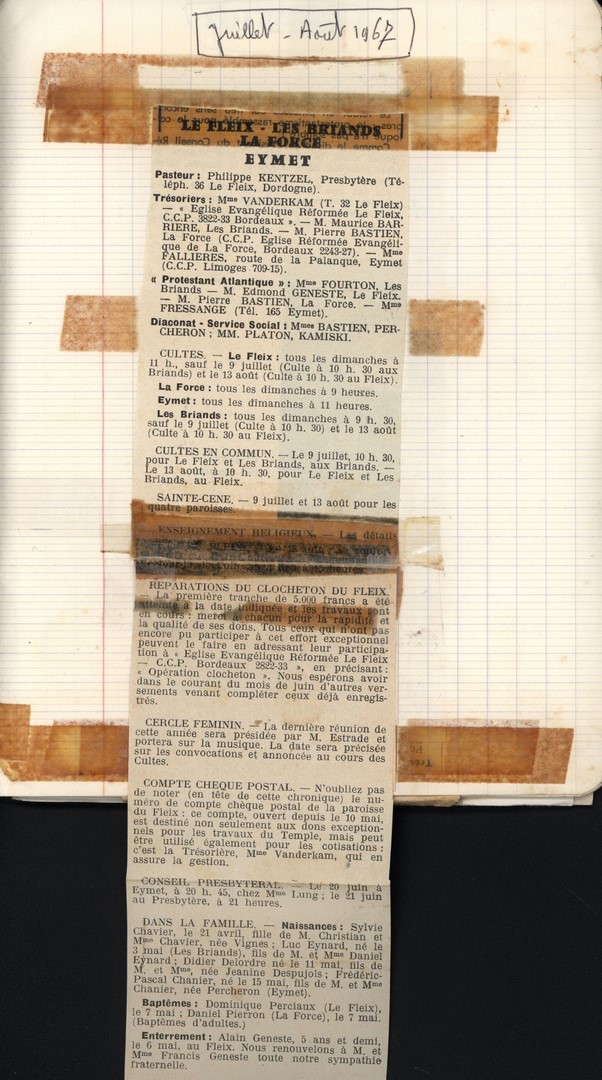 Juillet - Août 1967
LE FLEIX - LES BRIANDS
LA FORCE
EYMET
Pasteur : Philippe KENTZEL, Presbytère (Té-
léph. 36 Le Fleix, Dordogne).
Trésoriers : Mme VANDERKAM (T. 32 Le Fleix)
— « Eglise Evangélique Réformée Le Fleix,
C.C.P. 3822-33 Bordeaux ». — M. Maurice BAR-
RIERE, Les Briands. — M. Pierre BASTIEN,
La Force (C.C.P. Eglise Réformée Evangéli-
que de La Force, Bordeaux 2243-27). — Mme
FALLIERES, route de la Palanque, Eymet
(C.C.P. Limoges 709-15).
« Protestant Atlantique » : Mme FOURTON, Les
Briands — M. Edmond GENESTE, Le Fleix.
— M. Pierre BASTIEN, La Force. — Mme
FRESSANGE (Tél. 165 Eymet).
Diaconat - Service Social : Mmes BASTIEN, PER-
CHERON ; MM. PLATON, KAMISKI.
CULTES. — Le Fleix : tous les dimanches à
11 h., sauf le 9 juillet (Culte à 10 h. 30 aux
Briands) et le 13 août (Culte à 10 h. 30 au Fleix).
La Force : tous les dimanches à 9 heures.
Eymet : tous les dimanches à 11 heures.
Les Briands : tous les dimanches à 9 h. 30,
sauf le 9 juillet (Culte à 10 h. 30) et le 13 août
(Culte à 10 h. 30 au Fleix).
CULTES EN COMMUN. — Le 9 juillet, 10 h. 30,
pour Le Fleix et Les Briands, aux Briands. —
Le 13 août, à 10 h. 30, pour Le Fleix et Les
Briands, au Fleix.
SAINTE-CENE. — 9 juillet et 13 août pour les
quatre paroisses.
ENSEIGNEMENT RELIGIEUX. — Les détails
REPARATIONS DU CLOCHETON DU FLEIX.
— La première tranche de 5.000 francs a été
atteinte à la date indiquée et les travaux sont
en cours : merci à chacun pour la rapidité et
la qualité de ses dons. Tous ceux qui n'ont pas
encore pu participer à cet effort exceptionnel
peuvent le faire en adressant leur participa-
tion à « Eglise Evangélique Réformée Le Fleix
— C.C.P. Bordeaux 2822-33 », en précisant :
« Opération clocheton ». Nous espérons avoir
dans le courant du mois de juin d'autres ver-
sements venant compléter ceux déjà enregis-
trés.
CERCLE FEMININ. — La dernière réunion de
cette année sera présidée par M. Estrade et
portera sur la musique. La date sera précisée
sur les convocations et annoncée au cours des
Cultes.
COMPTE CHEQUE POSTAL. — N'oubliez pas
de noter (en tête de cette chronique) le nu-
méro de compte chèque postal de la paroisse
du Fleix : ce compte, ouvert depuis le 10 mai,
est destiné non seulement aux dons exception-
nels pour les travaux du Temple, mais peut
être utilisé également pour les cotisations :
c'est la Trésorière, Mme Vanderkam, qui en
assure la gestion.
CONSEIL PRESBYTERAL. — Le 20 juin à
Eymet, à 20 h. 45, chez Mme Lung ; le 21 juin
au Presbytère, à 21 heures.
DANS LA FAMILLE. — Naissances : Sylvie
Chavier, le 21 avril, fille de M. Christian et
Mme Chavier, née Vignes ; Luc Eynard, né le
3 mai (Les Briands), fils de M. et Mme Daniel
Eynard ; Didier Delordre né le 11 mai, fils de
M. et Mme, née Jeanine Despujols ; Frédéric-
Pascal Chanier, né le 15 mai, fils de M. et Mme
Chanier, née Percheron (Eymet).
Baptêmes : Dominique Perciaux (Le Fleix),
le 7 mai ; Daniel Pierron (La Force), le 7 mai.
(Baptêmes d'adultes.)
Enterrement : Alain Geneste, 5 ans et demi,
le 6 mai, au Fleix. Nous renouvelons à M. et
Mme Francis Geneste toute notre sympathie
fraternelle.